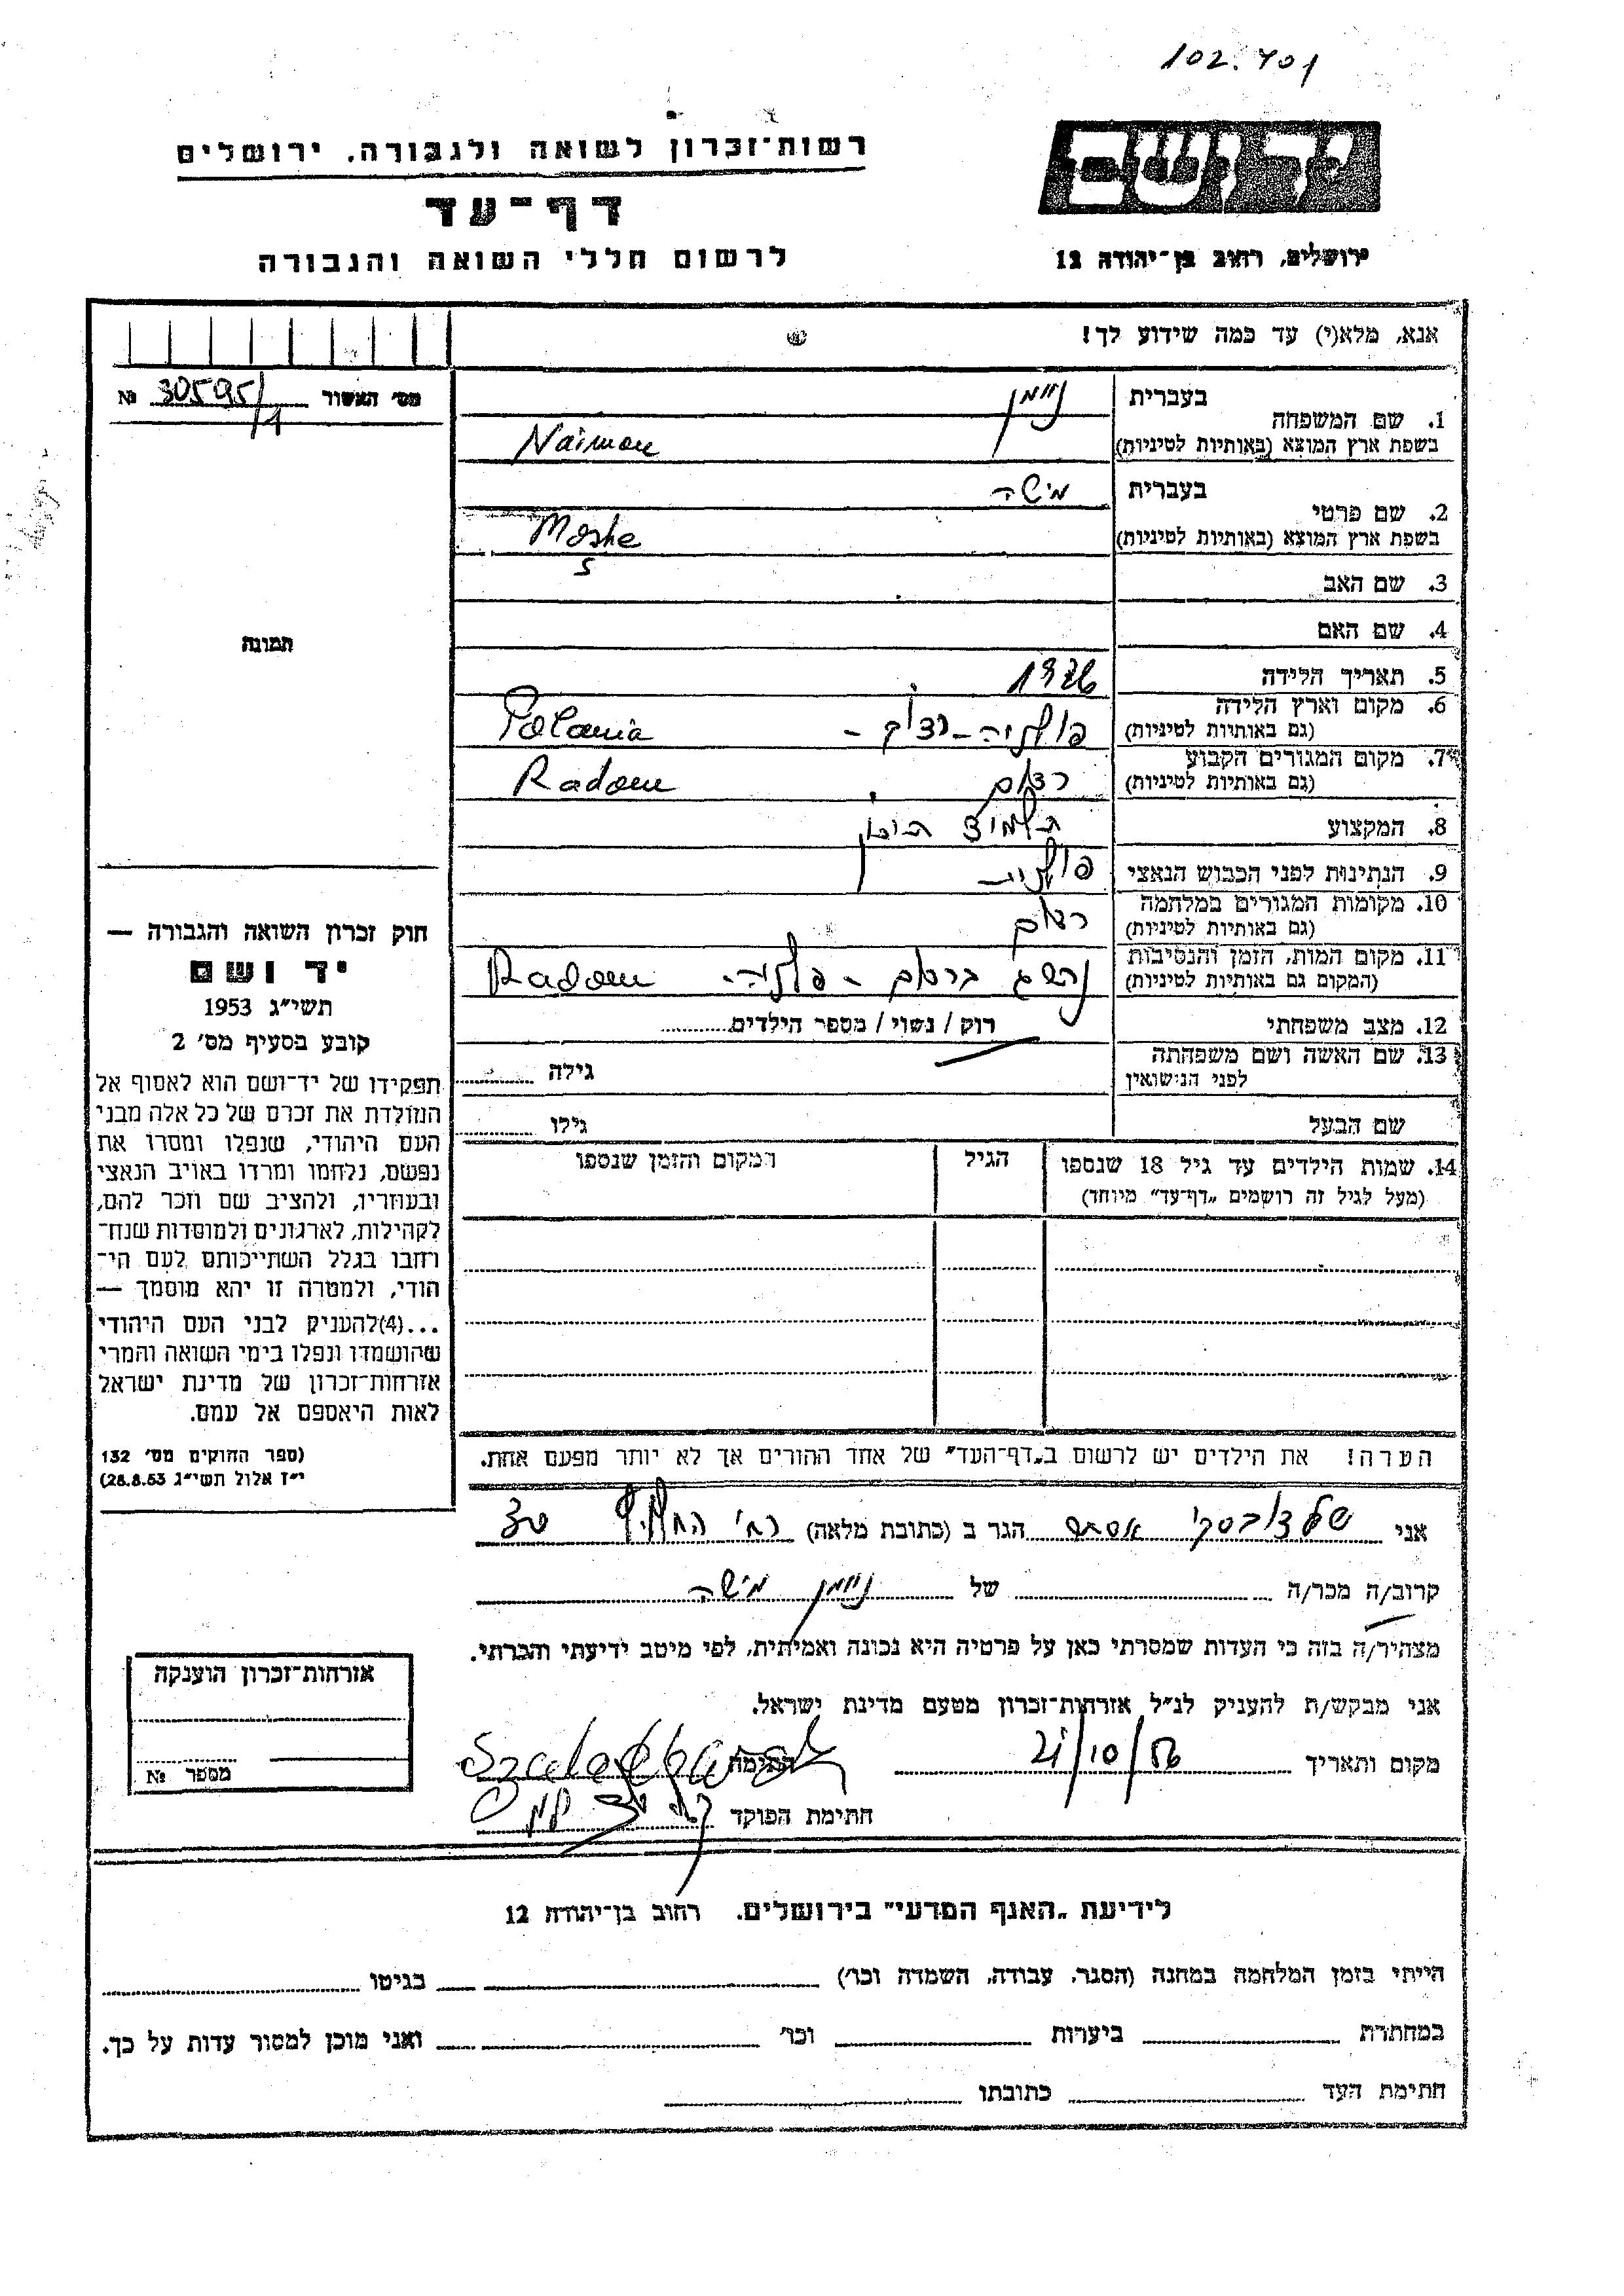 102.701
רשות־זכרון לשואה ולגבורה, ירושלים
דף־עד
לרשום חללי השואה והגבורה
ידושם
ירושלים, רחוב בן־יהודה 12
אנא, מלא(י) עד כמה שידוע לך!
מס׳ האשור 30595/1 №
בעברית
1. שם המשפחה
בשפת ארץ המוצא (באותיות לטיניות)
ניימן
Naiman
בעברית
2. שם פרטי
בשפת ארץ המוצא (באותיות לטיניות)
מישה
Moshe
3. שם האב
4. שם האם
תמונה
5. תאריך הלידה
6. מקום וארץ הלידה
(גם באותיות לטיניות)
פולניה - רדום - Polania
7. מקום המגורים הקבוע
(גם באותיות לטיניות)
רדום Radom
8. המקצוע תלמיד תיכון
9. הנתינות לפני הכבוש הנאצי פולנית
10. מקומות המגורים במלחמה
(גם באותיות לטיניות)
רדום
11. מקום המות, הזמן והנסיבות
(המקום גם באותיות לטיניות)
נהרג ברדום - פולניה - Radom
12. מצב משפחתי רוק / נשוי / מספר הילדים
13. שם האשה ושם משפחתה
לפני הנישואין
גילה
שם הבעל גילו
14. שמות הילדים עד גיל 18 שנספו
(מעל לגיל זה רושמים „דף־עד” מיוחד)
הגיל
המקום והזמן שנספו
חוק זכרון השואה והגבורה —
יד ושם
תשי״ג 1953
קובע בסעיף מס׳ 2
תפקידו של יד־ושם הוא לאסוף אל
המולדת את זכרם של כל אלה מבני
העם היהודי, שנפלו ומסרו את
נפשם, נלחמו ומרדו באויב הנאצי
ובעוזריו, ולהציב שם וזכר להם,
לקהילות, לארגונים ולמוסדות שנח־
רחבו בגלל השתייכותם לעם הי־
הודי, ולמטרה זו יהא מוסמך —
...(4)להעניק לבני העם היהודי
שהושמדו ונפלו בימי השואה והמרי
אזרחות־זכרון של מדינת ישראל
לאות היאספם אל עמם.
(ספר החוקים מס׳ 132
י״ז אלול תשי״ג 28.8.53)
הערה! את הילדים יש לרשום ב„דף־העד” של אחד ההורים אך לא יותר מפעם אחת.
אני אסתר הגר ב (כתובת מלאה) רח׳
קרוב/ה מכר/ה של ניימן מישה
מצהיר/ה בזה כי העדות שמסרתי כאן על פרטיה היא נכונה ואמיתית, לפי מיטב ידיעתי והכרתי.
אני מבקש/ת להעניק לנ״ל אזרחות־זכרון מטעם מדינת ישראל.
מקום ותאריך 21/10/56 חתימה
חתימת הפוקד
אזרחות־זכרון הוענקה
מספר №
לידיעת „האגף המדעי” בירושלים, רחוב בן־יהודה 12
הייתי בזמן המלחמה במחנה (הסגר, עבודה, השמדה וכו׳) בגיטו
במחתרת ביערות וכו׳ ואני מוכן למסור עדות על כך.
חתימת העד כתובתו